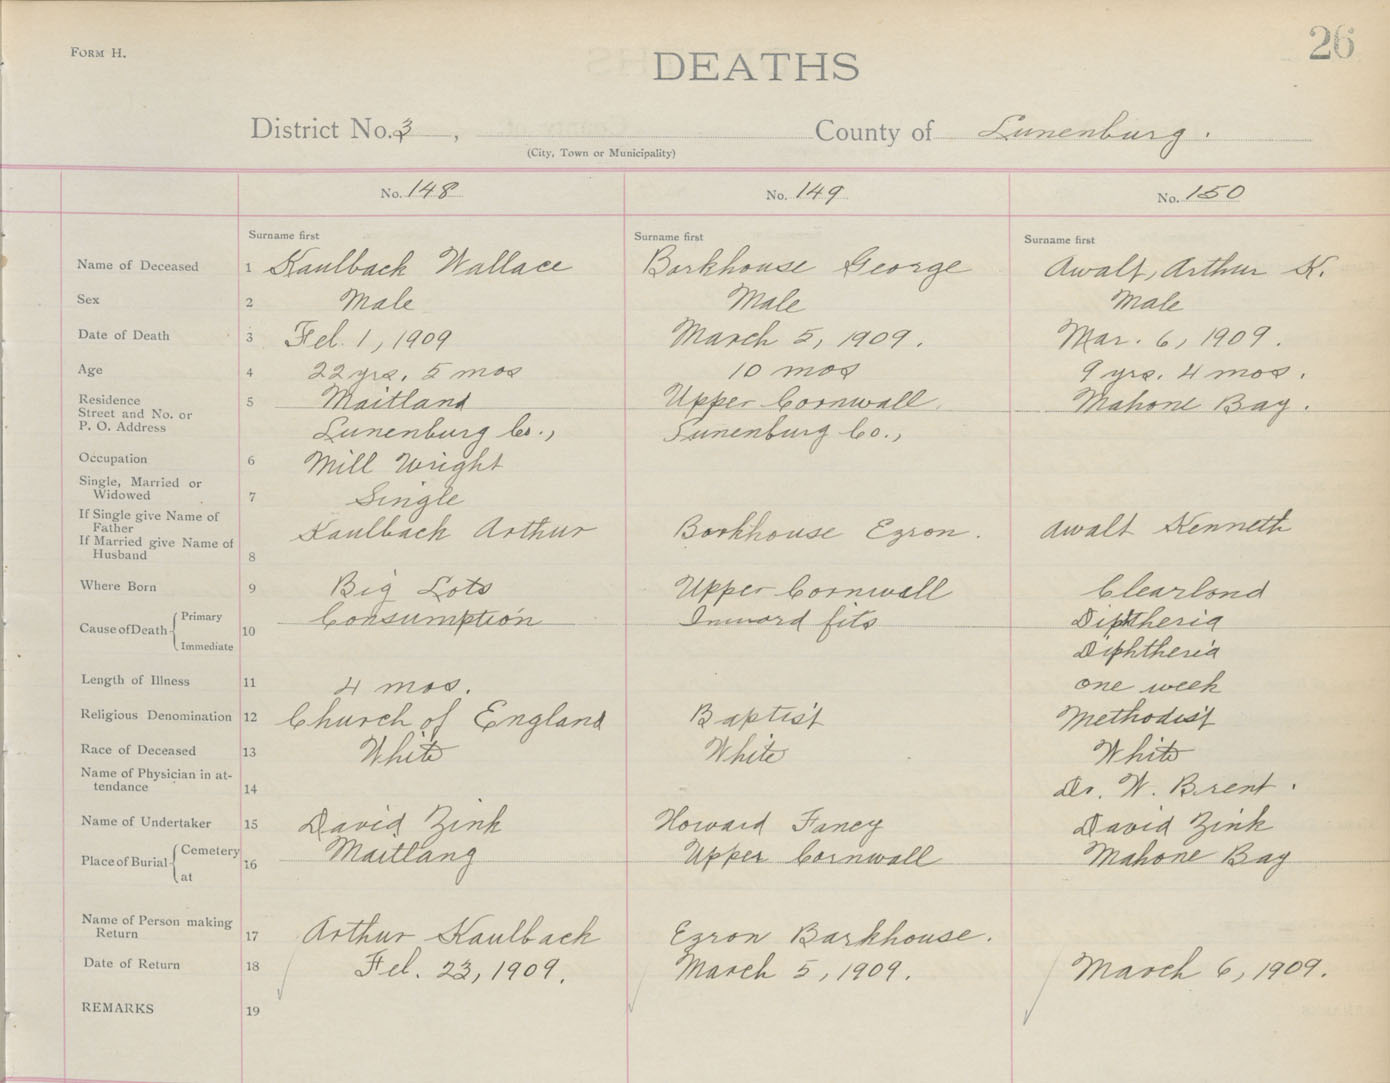 26
FORM H.
DEATHS
District No. 3 , County of Lunenburg.
(City, Town or Municipality)
No. 148 No. 149 No. 150
Surname first Surname first Surname first
Name of Deceased 1 Kaulback Wallace Barkhouse George Awalt, Arthur K.
Sex 2 Male Male Male
Date of Death 3 Feb. 1, 1909 March 5, 1909. Mar. 6, 1909.
Age 4 22 yrs. 5 mos 10 mos 9 yrs. 4 mos.
Residence 5 Maitland Upper Cornwall Mahone Bay.
Street and No. or
P. O. Address Lunenburg Co., Lunenburg Co.,
Occupation 6 Mill Wright
Single, Married or
Widowed 7 Single
If Single give Name of
Father Kaulback Arthur Barkhouse Ezron. Awalt Kenneth
If Married give Name of
Husband 8
Where Born 9 Big Lots Upper Cornwall Clearland
Cause of Death Primary 10 Consumption Inward fits Diptheria
Immediate Diphtheria
Length of Illness 11 4 mos. one week
Religious Denomination 12 Church of England Baptist Methodist
Race of Deceased 13 White White White
Name of Physician in at-
tendance 14 Dr. W. Brent.
Name of Undertaker 15 David Zink Howard Fancy David Zink
Place of Burial Cemetery 16 Maitlang Upper Cornwall Mahone Bay
at
Name of Person making
Return 17 Arthur Kaulback Ezron Barkhouse.
Date of Return 18 Feb. 23, 1909. March 5, 1909. March 6, 1909.
REMARKS 19